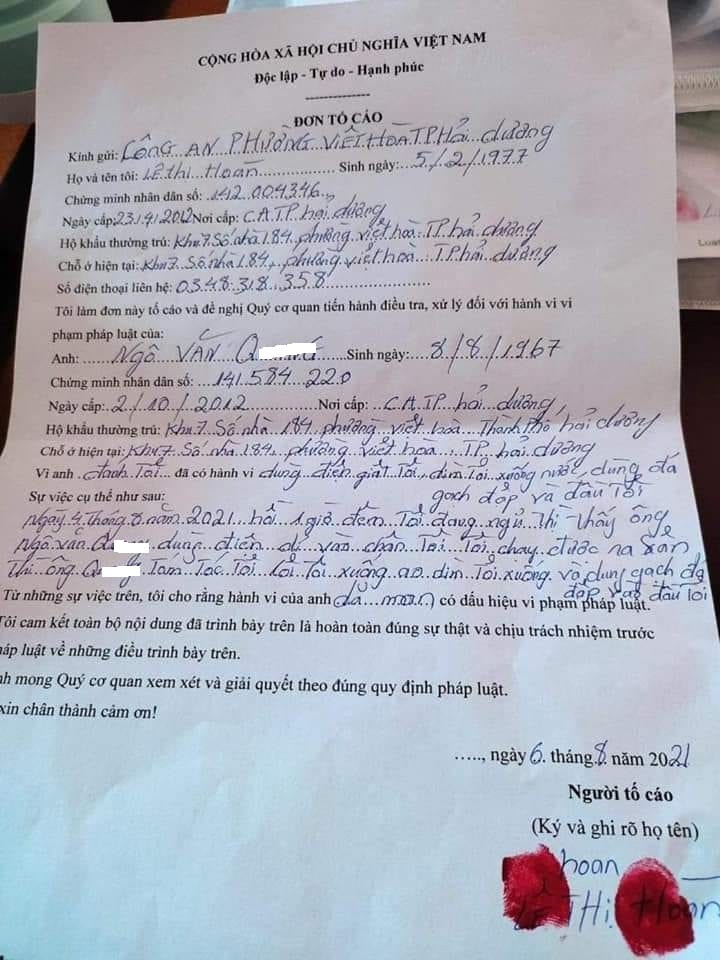 CỘNG HÒA XÃ HỘI CHỦ NGHĨA VIỆT NAM
Độc lập - Tự do - Hạnh phúc
--------------
ĐƠN TỐ CÁO
Kính gửi: CÔNG AN PHƯỜNG VIỆT HOÀ TP Hải dương
Họ và tên tôi: Lê thị Hoan Sinh ngày: 5/2/1977
Chứng minh nhân dân số: 142.004346
Ngày cấp: 23/4/2012 Nơi cấp: C.A.T.P. hải dương
Hộ khẩu thường trú: Khu 7. Số nhà 184. phường việt hoà. TP hải dương
Chỗ ở hiện tại: Khu 7. Số nhà 184. phường việt hoà. TP hải dương
Số điện thoại liên hệ: 0348.318.358
Tôi làm đơn này tố cáo và đề nghị Quý cơ quan tiến hành điều tra, xử lý đối với hành vi vi
phạm pháp luật của:
Anh: NGÔ VĂN Q Sinh ngày: 8/8/1967
Chứng minh nhân dân số: 141.584.220
Ngày cấp: 2/10/2012 Nơi cấp: C.A.TP. hải dương
Hộ khẩu thường trú: Khu 7. Số nhà 184 phường việt hoà Thành phố hải dương
Chỗ ở hiện tại: Khu 7 Số nhà 184. phường việt hoà TP. hải dương
Vì anh đánh Tôi đã có hành vi dùng điện giật Tôi, dìm Tôi xuống nước, dùng đá
gạch đập và đầu Tôi
Sự việc cụ thể như sau:
Ngày 4 Tháng 8 năm 2021 hồi 1 giờ đêm Tôi đang ngủ Thì Thấy ông
Ngô văn Q dùng điện dí vào chân Tôi Tôi chạy được ra sân
Thì ông Q Tóm Tóc Tôi lôi Tôi xuống ao dìm Tôi xuống và dùng gạch đá
đập vào đầu Tôi
Từ những sự việc trên, tôi cho rằng hành vi của anh dã man có dấu hiệu vi phạm pháp luật.
Tôi cam kết toàn bộ nội dung đã trình bày trên là hoàn toàn đúng sự thật và chịu trách nhiệm trước
pháp luật về những điều trình bày trên.
nh mong Quý cơ quan xem xét và giải quyết theo đúng quy định pháp luật.
xin chân thành cảm ơn!
....., ngày 6 tháng 8 năm 2021
Người tố cáo
(Ký và ghi rõ họ tên)
hoan
LÊ THị Hoan